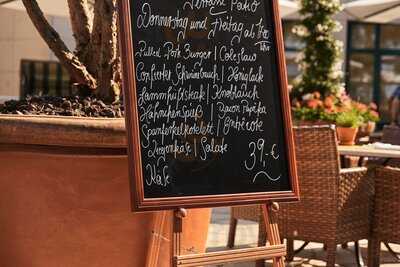 Donnerstag und Freitag ab
Uhr
Pulled Pork Burger | Coleslaw
Confierter Schweinebauch | Honiglack
Lammhüftsteak | Knoblauch
Hähnchenspieß | Bacon Paprika
Spanferkelkotelett | Entrecôte
Ziegenkäse | Salate
Käse
39,-€